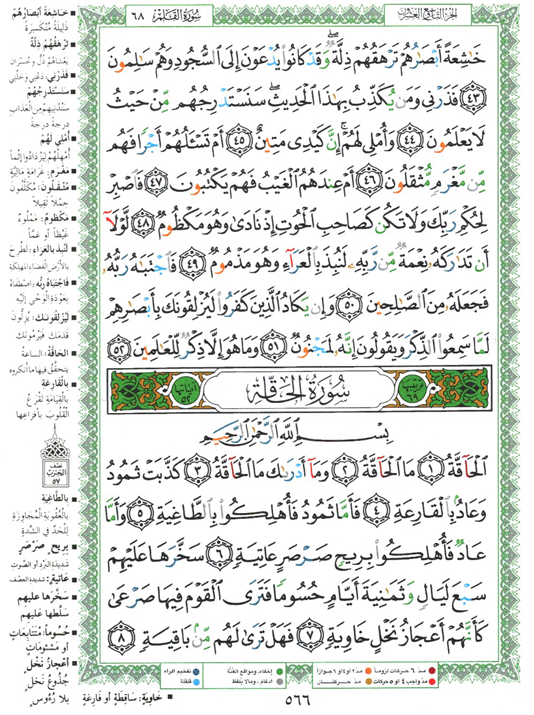 الجزء التاسع والعشرون
سورة القلم ٦٨
خَاشِعَةً أَبْصَارُهُمْ تَرْهَقُهُمْ ذِلَّةٌ وَقَدْ كَانُوا يُدْعَوْنَ إِلَى السُّجُودِ وَهُمْ سَالِمُونَ
﴿٤٣﴾ فَذَرْنِي وَمَن يُكَذِّبُ بِهَٰذَا الْحَدِيثِ سَنَسْتَدْرِجُهُم مِّنْ حَيْثُ
لَا يَعْلَمُونَ ﴿٤٤﴾ وَأُمْلِي لَهُمْ إِنَّ كَيْدِي مَتِينٌ ﴿٤٥﴾ أَمْ تَسْأَلُهُمْ أَجْرًا فَهُم
مِّن مَّغْرَمٍ مُّثْقَلُونَ ﴿٤٦﴾ أَمْ عِندَهُمُ الْغَيْبُ فَهُمْ يَكْتُبُونَ ﴿٤٧﴾ فَاصْبِرْ
لِحُكْمِ رَبِّكَ وَلَا تَكُن كَصَاحِبِ الْحُوتِ إِذْ نَادَىٰ وَهُوَ مَكْظُومٌ ﴿٤٨﴾ لَّوْلَا
أَن تَدَارَكَهُ نِعْمَةٌ مِّن رَّبِّهِ لَنُبِذَ بِالْعَرَاءِ وَهُوَ مَذْمُومٌ ﴿٤٩﴾ فَاجْتَبَاهُ رَبُّهُ
فَجَعَلَهُ مِنَ الصَّالِحِينَ ﴿٥٠﴾ وَإِن يَكَادُ الَّذِينَ كَفَرُوا لَيُزْلِقُونَكَ بِأَبْصَارِهِمْ
لَمَّا سَمِعُوا الذِّكْرَ وَيَقُولُونَ إِنَّهُ لَمَجْنُونٌ ﴿٥١﴾ وَمَا هُوَ إِلَّا ذِكْرٌ لِّلْعَالَمِينَ ﴿٥٢﴾
ترتيبها ٦٩ سُورَةُ الْحَاقَّةِ آياتها ٥٢
بِسْمِ اللَّهِ الرَّحْمَٰنِ الرَّحِيمِ
الْحَاقَّةُ ﴿١﴾ مَا الْحَاقَّةُ ﴿٢﴾ وَمَا أَدْرَاكَ مَا الْحَاقَّةُ ﴿٣﴾ كَذَّبَتْ ثَمُودُ
وَعَادٌ بِالْقَارِعَةِ ﴿٤﴾ فَأَمَّا ثَمُودُ فَأُهْلِكُوا بِالطَّاغِيَةِ ﴿٥﴾ وَأَمَّا
عَادٌ فَأُهْلِكُوا بِرِيحٍ صَرْصَرٍ عَاتِيَةٍ ﴿٦﴾ سَخَّرَهَا عَلَيْهِمْ
سَبْعَ لَيَالٍ وَثَمَانِيَةَ أَيَّامٍ حُسُومًا فَتَرَى الْقَوْمَ فِيهَا صَرْعَىٰ
كَأَنَّهُمْ أَعْجَازُ نَخْلٍ خَاوِيَةٍ ﴿٧﴾ فَهَلْ تَرَىٰ لَهُم مِّن بَاقِيَةٍ ﴿٨﴾
خَاشِعَةً أَبْصَارُهُمْ
ذَلِيلَةً مُنْكَسِرَةً
تَرْهَقُهُمْ ذِلَّةٌ
فَذَرْنِي: دَعْنِي وَخَلِّنِي
سَنَسْتَدْرِجُهُمْ
دَرَجَةً دَرَجَةً
أُمْلِي لَهُمْ
مَغْرَمٍ: غَرَامَةٍ مَالِيَّةٍ
مُثْقَلُونَ: مُكَلَّفُونَ
حِمْلًا ثَقِيلًا
مَكْظُومٌ: مَمْلُوءٌ
غَيْظًا أَوْ غَمًّا
لَنُبِذَ بِالْعَرَاءِ: لَطُرِحَ
بِالأَرْضِ الفَضَاءِ المُهْلِكَةِ
فَاجْتَبَاهُ رَبُّهُ: اصْطَفَاهُ
بِعَوْدَةِ الوَحْيِ إِلَيْهِ
لَيُزْلِقُونَكَ: يُزِلُّونَ
قَدَمَكَ فَيَرْمُونَكَ
الْحَاقَّةُ: السَّاعَةُ
يَتَحَقَّقُ فِيهَا مَا أَنْكَرُوهُ
بِالْقَارِعَةِ
بِالْقِيَامَةِ تَقْرَعُ
القُلُوبَ بِأَفْزَاعِهَا
نصف
الحزب
٥٧
بِالطَّاغِيَةِ
بِالْعُقُوبَةِ الْمُجَاوِزَةِ
لِلْحَدِّ فِي الشِّدَّةِ
بِرِيحٍ صَرْصَرٍ
شَدِيدَةِ الْبَرْدِ أَوِ الصَّوْتِ
عَاتِيَةٍ: شَدِيدَةِ العَصْفِ
سَخَّرَهَا عَلَيْهِمْ
سَلَّطَهَا عَلَيْهِمْ
حُسُومًا: مُتَتَابِعَاتٍ
أَوْ مَشْئُومَاتٍ
أَعْجَازُ نَخْلٍ
جُذُوعُ نَخْلٍ
بِلَا رُءُوسٍ
خَاوِيَةٍ: سَاقِطَةٍ أَوْ فَارِغَةٍ
مدّ ٦ حركات لزوماً مدّ ٢ أو ٤ أو ٦ جوازاً إخفاء، ومواقع الغنّة تفخيم الراء
مدّ واجب ٤ أو ٥ حركات مدّ حركتان إدغام، وما لا يُلفظ قلقلة
٥٦٦